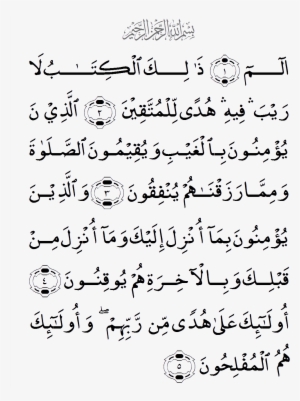 بِسْمِ اللَّهِ الرَّحْمَٰنِ الرَّحِيمِ
الٓمٓ ١ ذَٰلِكَ الْكِتَٰبُ لَا
رَيْبَ ۛ فِيهِ ۛ هُدًى لِّلْمُتَّقِينَ ٢ الَّذِينَ
يُؤْمِنُونَ بِالْغَيْبِ وَيُقِيمُونَ الصَّلَوٰةَ
وَمِمَّا رَزَقْنَٰهُمْ يُنْفِقُونَ ٣ وَالَّذِينَ
يُؤْمِنُونَ بِمَآ أُنْزِلَ إِلَيْكَ وَمَآ أُنْزِلَ مِنْ
قَبْلِكَ وَبِالْآخِرَةِ هُمْ يُوقِنُونَ ٤
أُولَٰٓئِكَ عَلَىٰ هُدًى مِّن رَّبِّهِمْ ۖ وَأُولَٰٓئِكَ
هُمُ الْمُفْلِحُونَ ٥